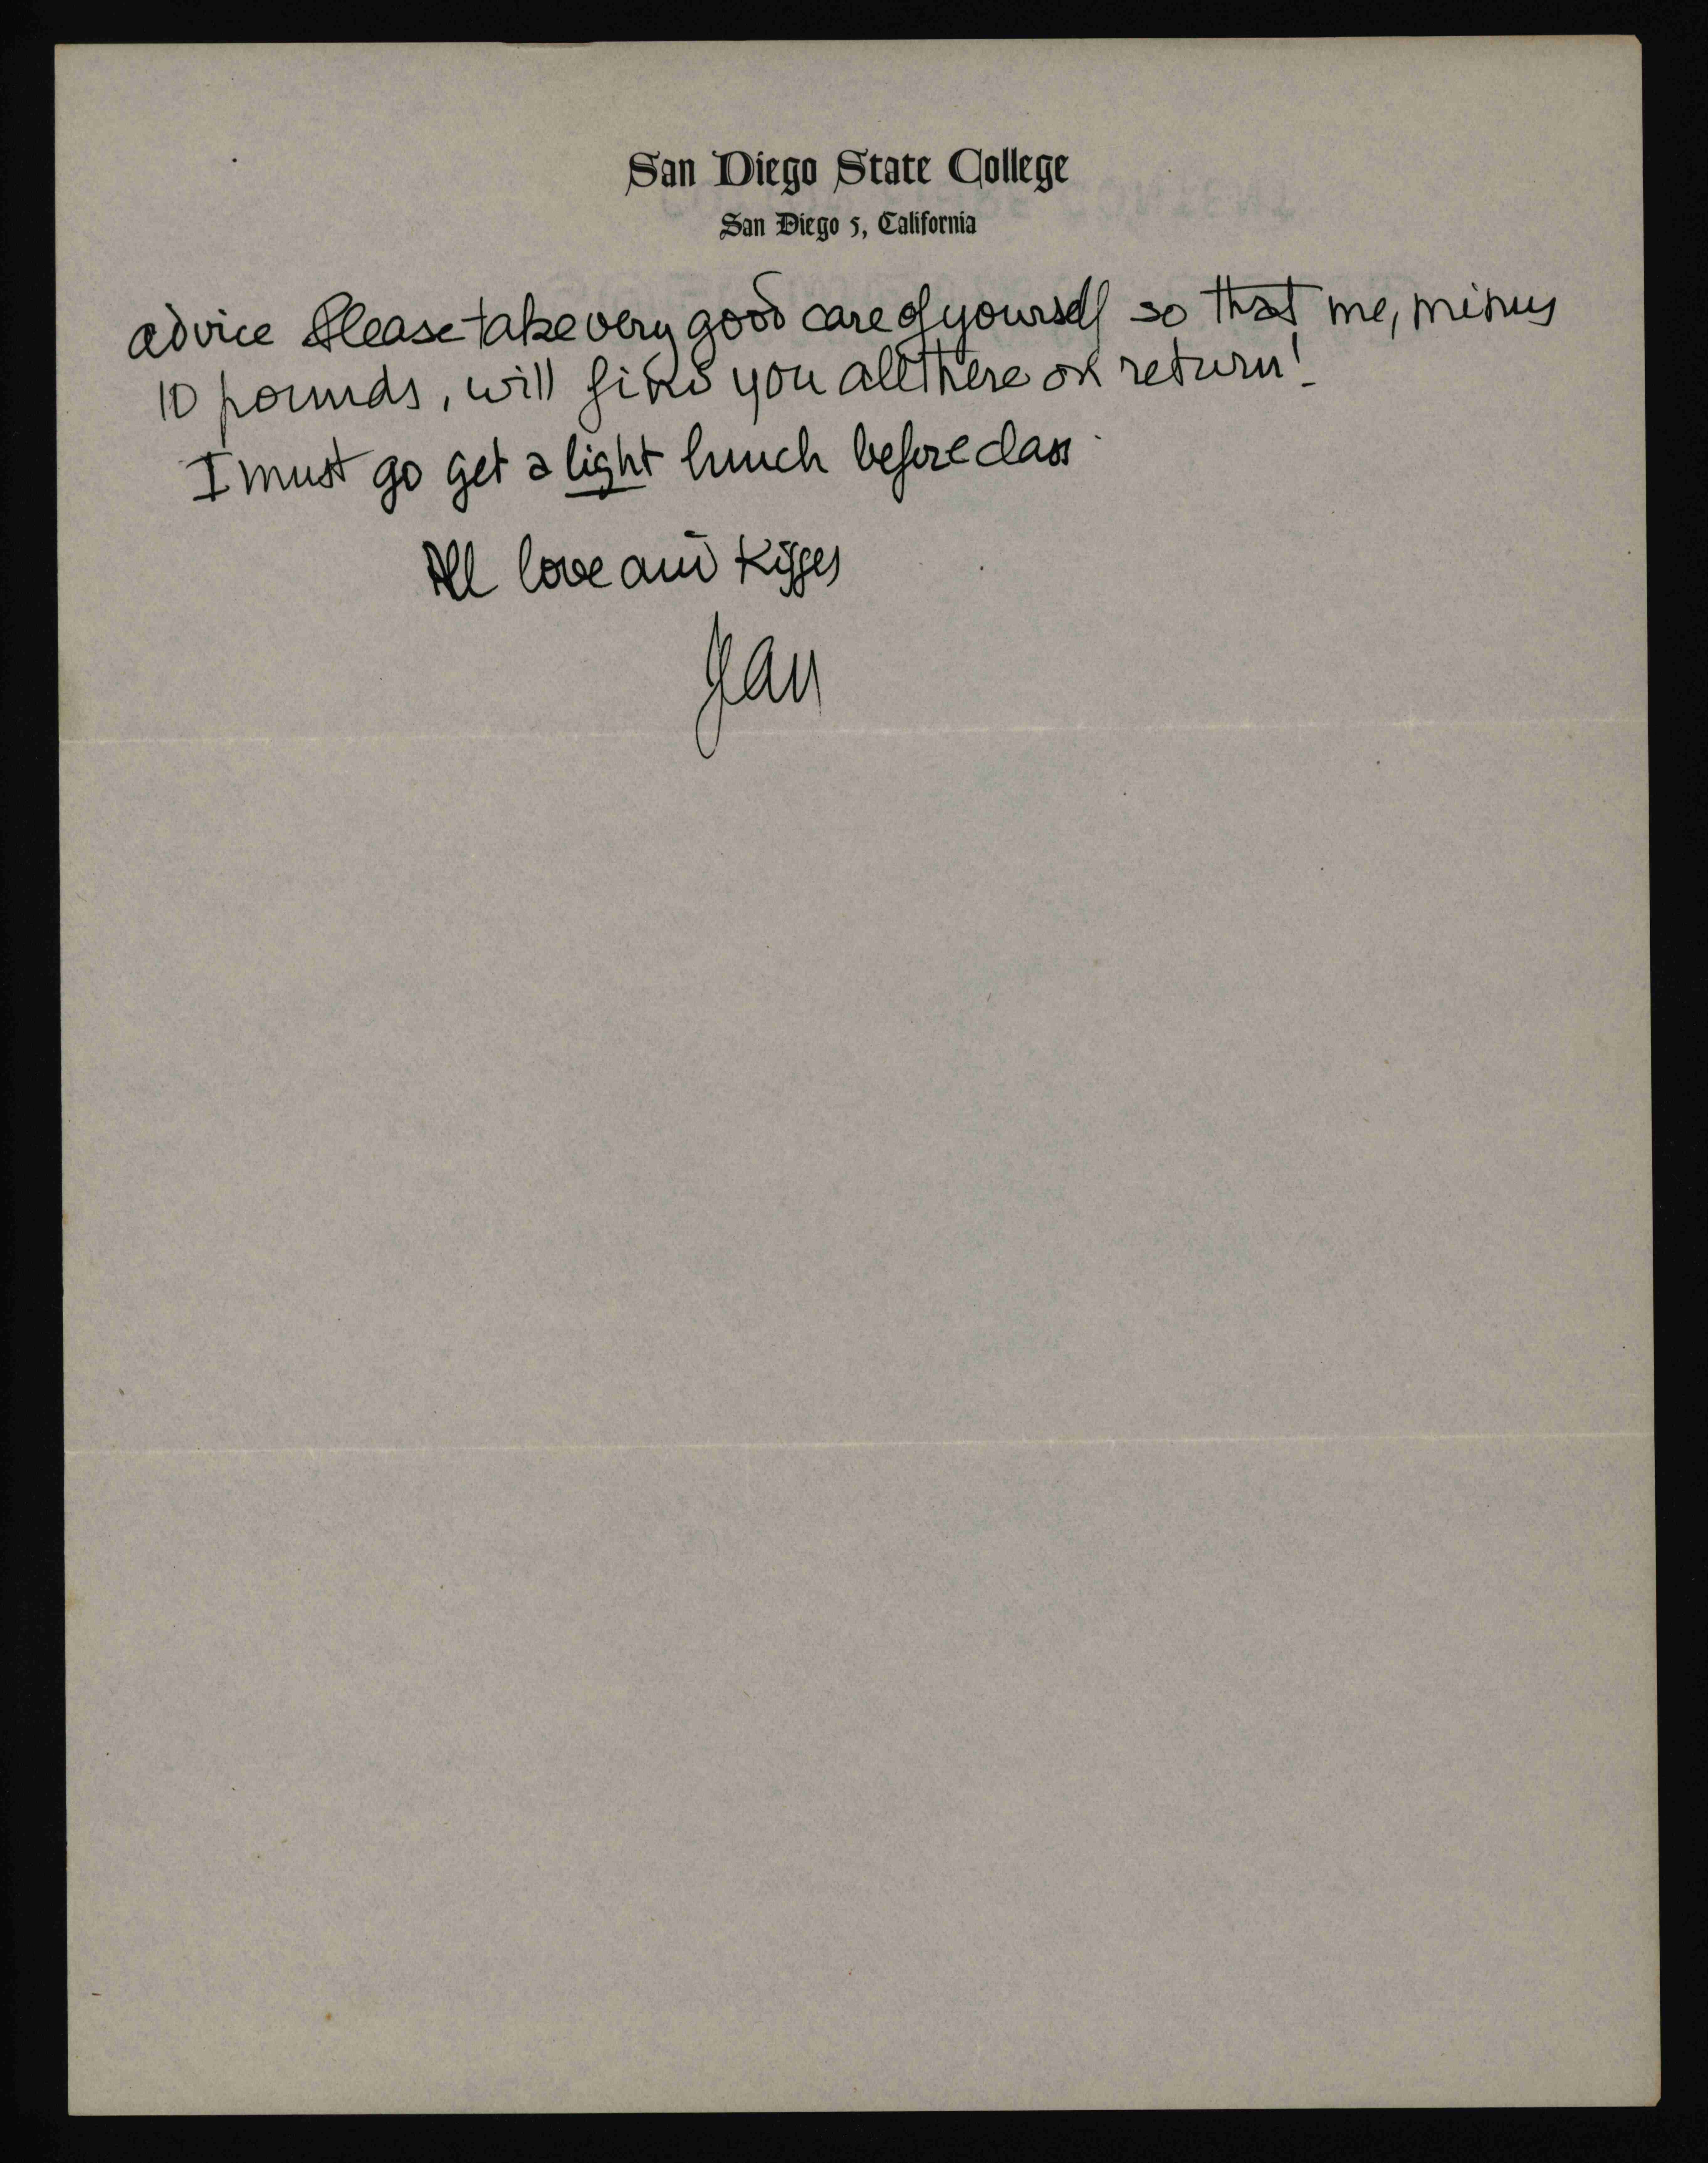 San Diego State College
San Diego 5, California
advice Please take very good care of yourself so that me, minus
10 pounds, will find you all there on return!
I must go get a light lunch before class.
All love and kisses
Jan